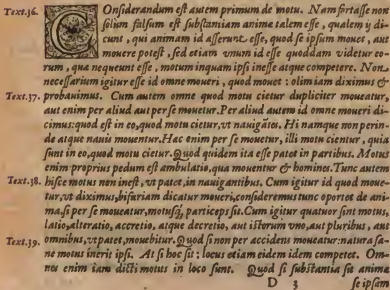 Text.36. COnsiderandum est autem primum de motu. Nam fortasse non
solum falsum est substantiam animæ talem esse, qualem ij di-
cunt, qui animam id asserunt esse, quod se ipsum mouet, aut
mouere potest, sed etiam vnum id esse quoddam videtur eo-
rum, quæ nequeunt esse, motum inquam ipsi inesse atque competere. Non
necessarium igitur esse id omne moueri, quod mouet: olim iam diximus &
Text.37. probauimus. Cum autem omne quod motu cietur dupliciter moueatur,
aut enim per aliud aut per se mouetur. Per aliud autem id omne moueri di-
cimus: quod est in eo, quod motu cietur, vt nauigātes. Hi namque non perin-
de atque nauis mouentur. Hæc enim per se mouetur, illi motu cientur, quia
sunt in eo, quod motu cietur. Quod quidem ita esse patet in partibus. Motus
enim proprius pedum est ambulatio, qua mouentur & homines. Tunc autem
Text.38. hisce motus non inest, vt patet, in nauigantibus. Cum igitur id quod moue-
tur, vt diximus, bifariam dicatur moueri, consideremus tunc oportet de ani-
ma, si per se moueatur, motusq; particeps sit. Cum igitur quatuor sint motus,
latio, alteratio, accretio, atque decretio, aut istorum vno, aut pluribus, aut
Text.39. omnibus, vt patet, mouebitur. Quod si non per accidens moueatur: natura sa-
ne motus inerit ipsi. At si hoc sit: locus etiam eidem idem competet. Om-
nes enim iam dicti motus in loco sunt. Quod si substantia sit animæ
D 3 se ipsam